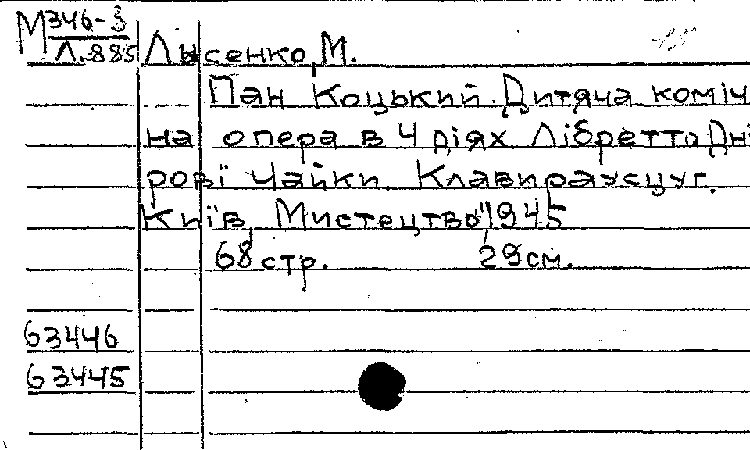 М 346-3
Л.885 Лысенко, М.
Пан Коцький. Дитяча коміч
на опера в 4 діях Лібретто Дні
рової Чайки. Клавираусцуг.
Київ, "Мистецтво" 1945
68 стр. 29 см.
63446
63445